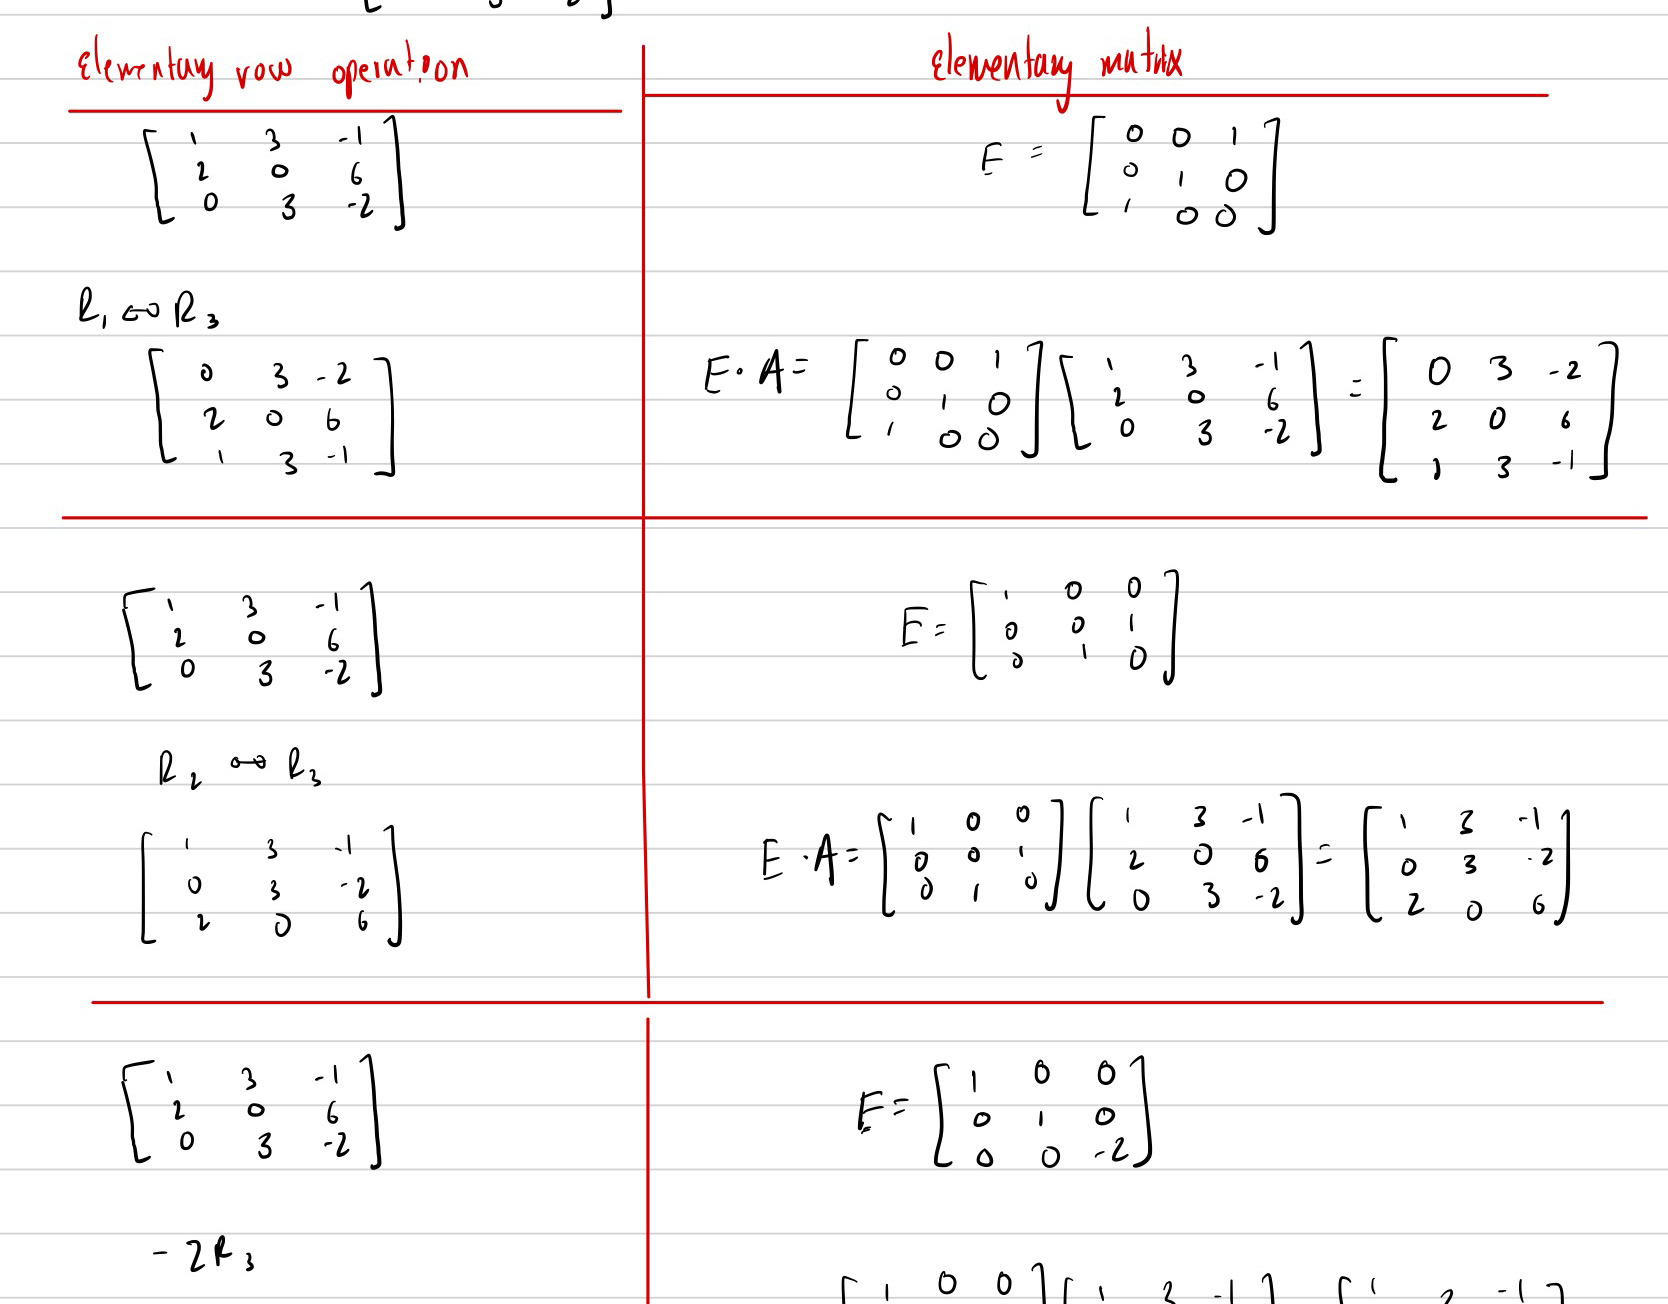 Elementary row operation
Elementary matrix
[ 1 3 -1
2 0 6
0 3 -2 ]
E = [ 0 0 1
0 1 0
1 0 0 ]
R₁ ↔ R₃
[ 0 3 -2
2 0 6
1 3 -1 ]
E · A = [ 0 0 1 ] [ 1 3 -1 ] = [ 0 3 -2 ]
[ 0 1 0 ] [ 2 0 6 ] [ 2 0 6 ]
[ 1 0 0 ] [ 0 3 -2 ] [ 1 3 -1 ]
[ 1 3 -1
2 0 6
0 3 -2 ]
E = [ 1 0 0
0 0 1
0 1 0 ]
R₂ ↔ R₃
[ 1 3 -1
0 3 -2
2 0 6 ]
E · A = [ 1 0 0 ] [ 1 3 -1 ] = [ 1 3 -1 ]
[ 0 0 1 ] [ 2 0 6 ] [ 0 3 -2 ]
[ 0 1 0 ] [ 0 3 -2 ] [ 2 0 6 ]
[ 1 3 -1
2 0 6
0 3 -2 ]
E = [ 1 0 0
0 1 0
0 0 -2 ]
-2R₃
[ 1 0 0 ] [ 1 3 -1 ] [ 1 3 -1 ]